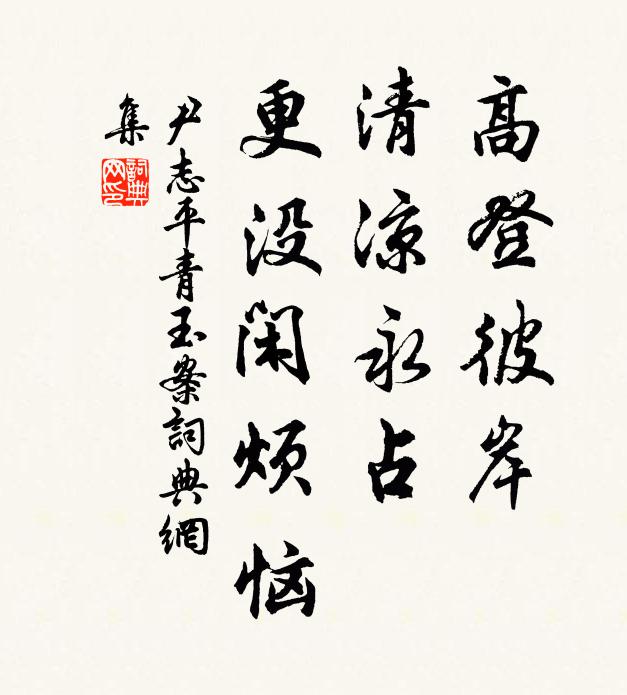 高登彼岸
清涼永占
更没閑煩恼
尹志平青玉案詞典網
集
詞典
网印